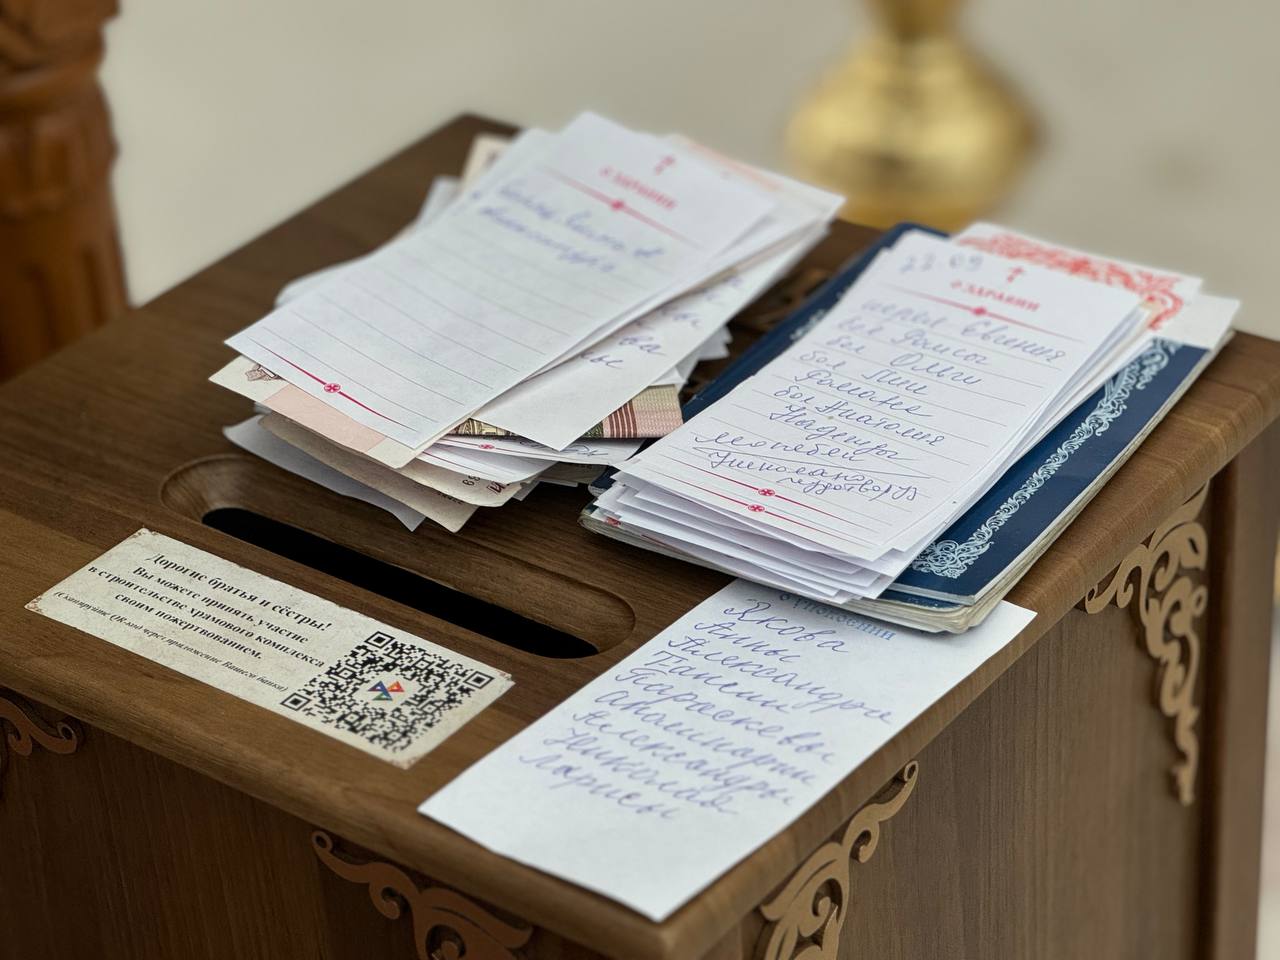 О ЗДРАВИИ
О ЗДРАВИИ
иерея Евгения
бол Раисы
бол Ольги
бол Лии
бол Анатолия
Надежды
Молебен
Николаю
чудотворцу
О УПОКОЕНИИ
Якова
Анны
Александры
Таисии
Параскевы
Александры
Николая
Ларисы
Дорогие братья и сёстры!
Вы можете принять участие
в строительстве храмового комплекса
своим пожертвованием.
(Сканируйте QR-код через приложение Вашего банка)